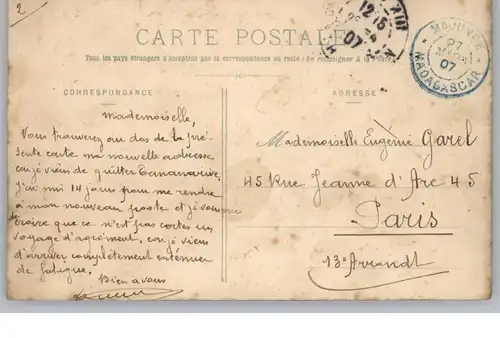 2
CARTE POSTALE
Tous les pays étrangers n'acceptent pas la correspondance au recto (Se renseigner à la Poste)
CORRESPONDANCE
ADRESSE
Mademoiselle,
Vous trouverez au dos de la pré-
sente carte ma nouvelle adresse
car je viens de quitter Tananarive,
J'ai mis 14 jours pour me rendre
à mon nouveau poste et je vous prie
de croire que ce n'est pas certes un
voyage d'agrément, car je viens
d'arriver complètement exténuer
de fatigue.
Bien a vous
Mademoiselle Eugénie Garel
45 Rue Jeanne d'Arc 45
Paris
13e Arrondt
12 15
07
27
MARS
07
MADAGASCAR